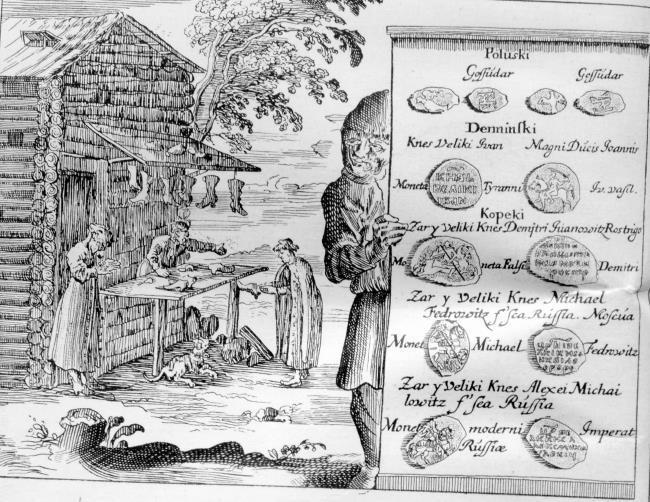 Poluski
Gossudar Gossudar
Denninski
Knes Veliki Ivan Magni Ducis Joannis
Moneta Tyranni Iv. vasl.
Kopeki
Zar y Veliki Knes Demitri Iuanowitz Rostrigo
Mo neta Falsi Demitri
Zar y Veliki Knes Michael
Fedrowitz f' sea Russia. Moscua
Monet Michael Fedrowitz
Zar y Veliki Knes Alexei Michai
lowitz f' sea Russia
Monet moderni Imperat
Russiæ